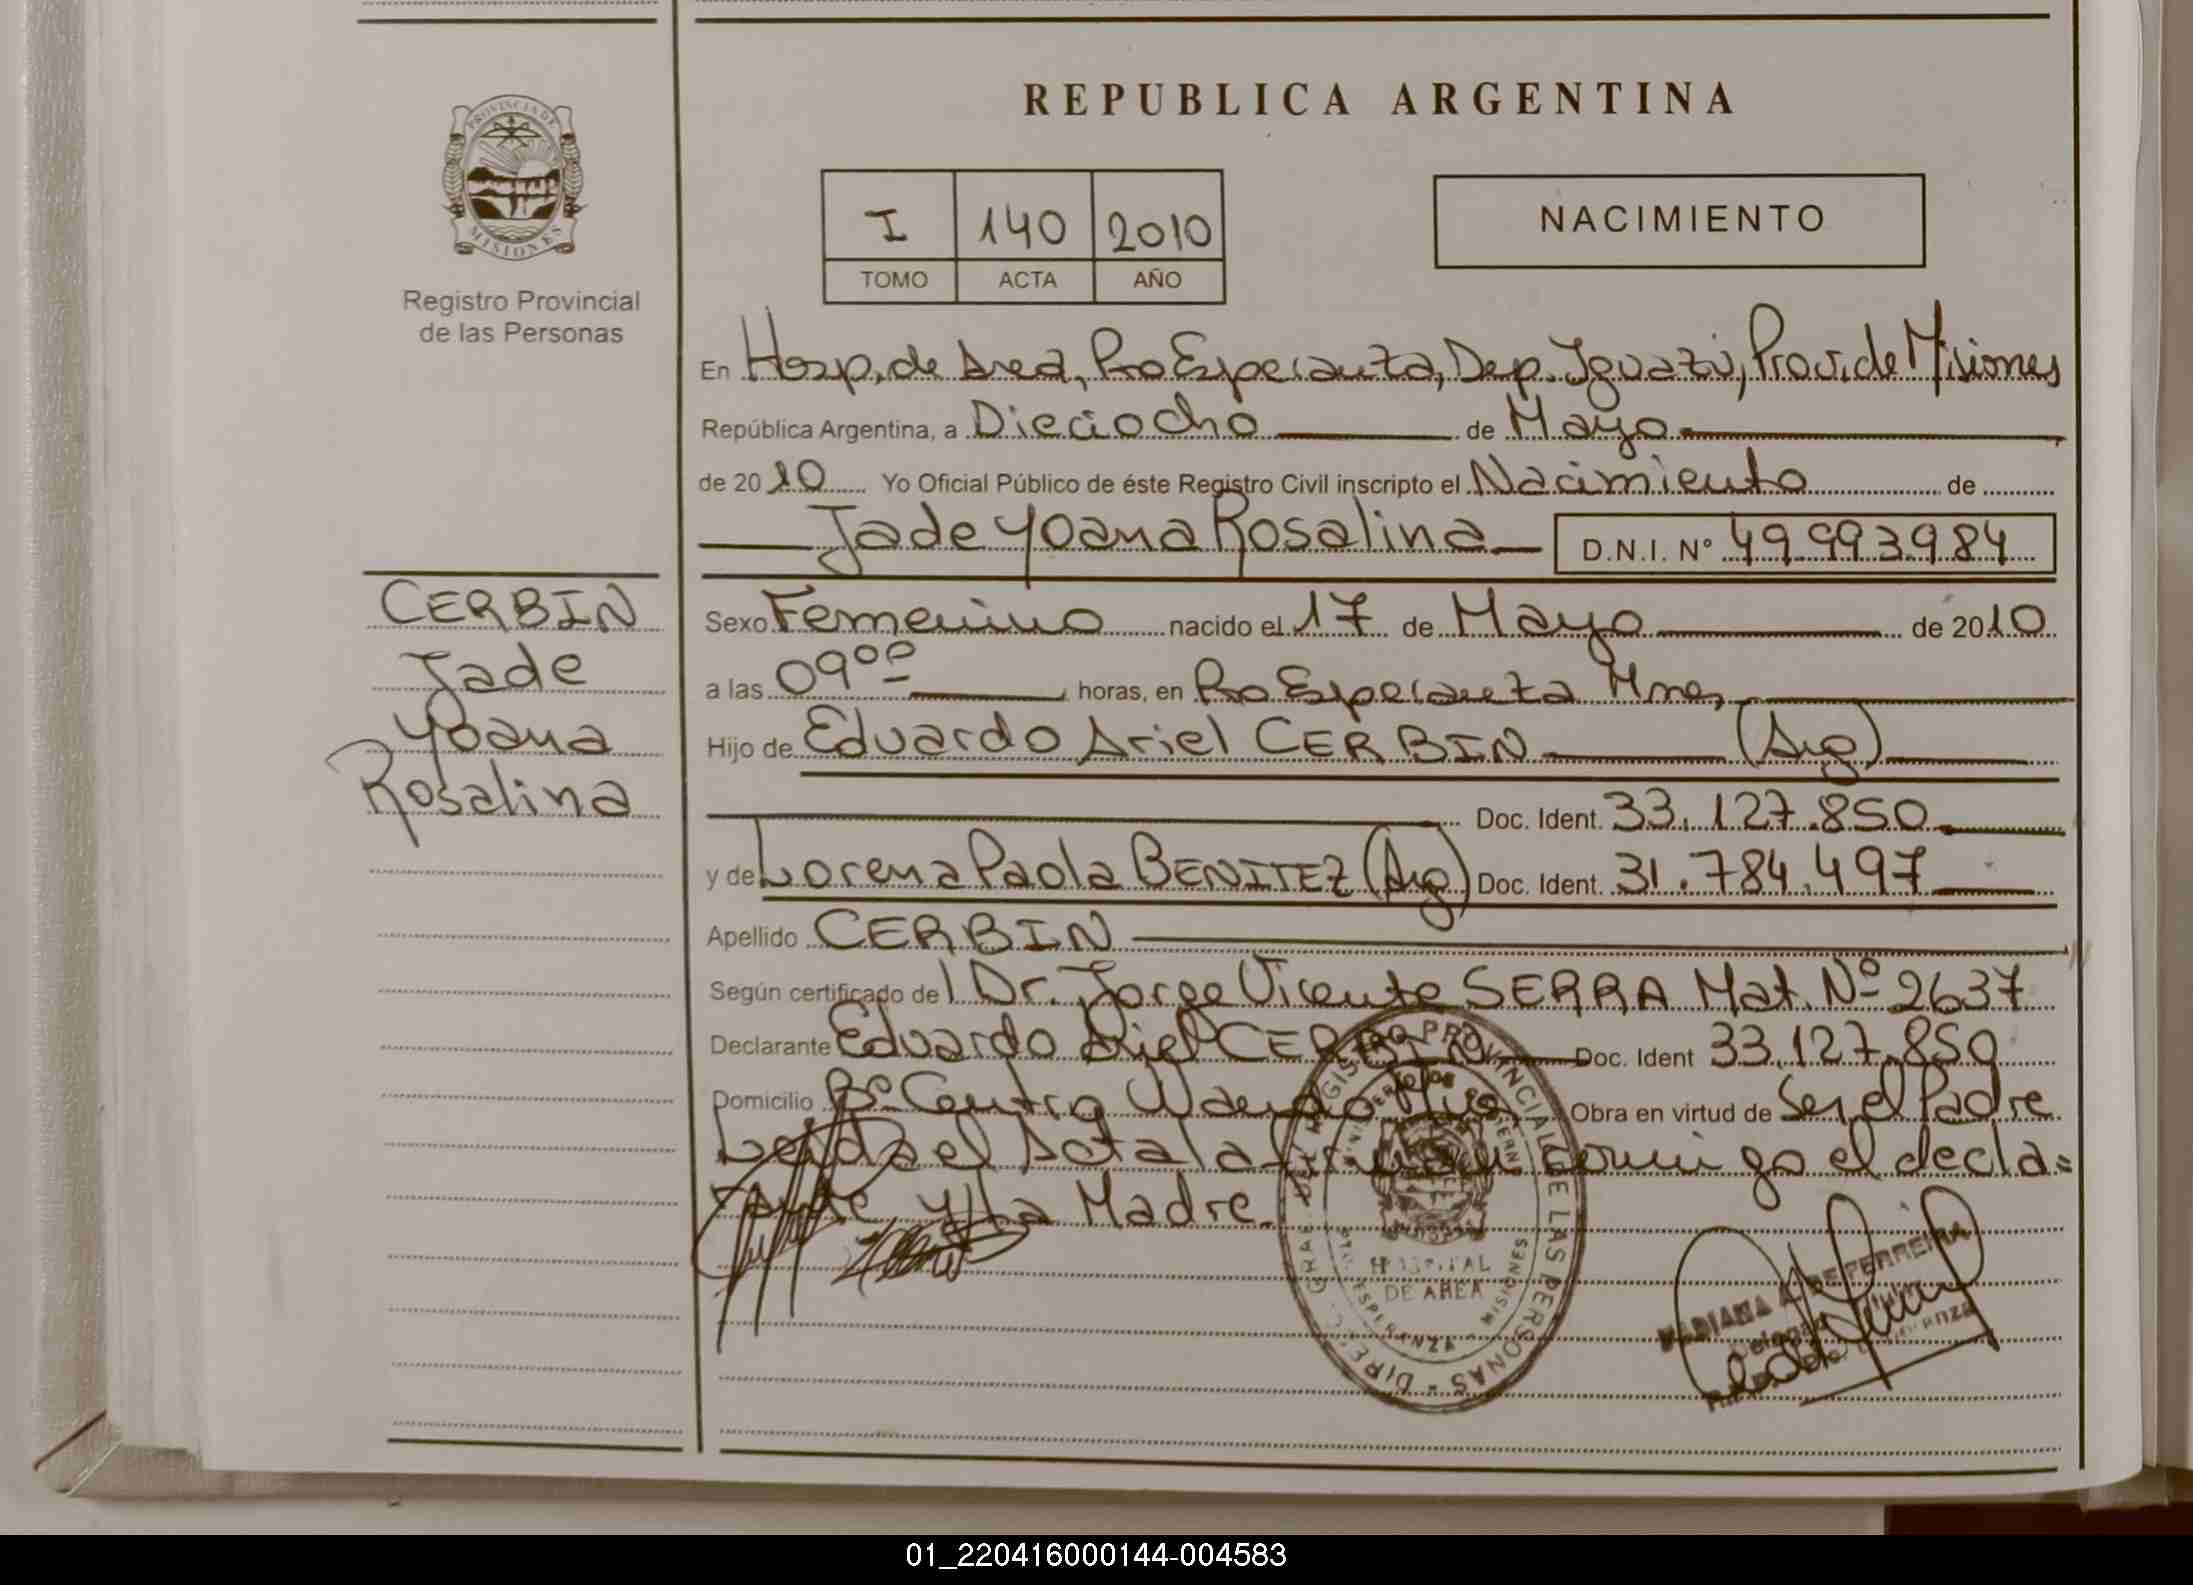 REPUBLICA ARGENTINA
PROVINCIA DE
MISIONES
Registro Provincial
de las Personas
I 140 2010
TOMO ACTA AÑO
NACIMIENTO
En Hosp. de Area, Pto Esperanza, Dep. Iguazú, Prov. de Misiones
República Argentina, a Dieciocho de Mayo
de 2010 Yo Oficial Público de éste Registro Civil inscripto el Nacimiento de
Jade Yoana Rosalina D.N.I. Nº 49.993.984
CERBIN
Jade
Yoana
Rosalina
Sexo Femenino nacido el 17 de Mayo de 2010
a las 09⁰⁰ horas, en Pto Esperanza Mnes,
Hijo de Eduardo Ariel CERBIN (Arg)
Doc. Ident. 33.127.850
y de Lorena Paola BENITEZ (Arg) Doc. Ident. 31.784.497
Apellido CERBIN
Según certificado del Dr. Jorge Vicente SERRA Mat. Nº 2637
Declarante Eduardo Ariel CERBIN Doc. Ident 33.127.850
Domicilio Bº Centro Wanda Obra en virtud de Ser el Padre
Leida el Acta la conmigo el decla=
rante y La Madre.
REGISTRO PROVINCIAL DE LAS PERSONAS
HOSPITAL
DE AREA
ESPERANZA - MISIONES
MARIANA A. DE FERREIRA
01_220416000144-004583